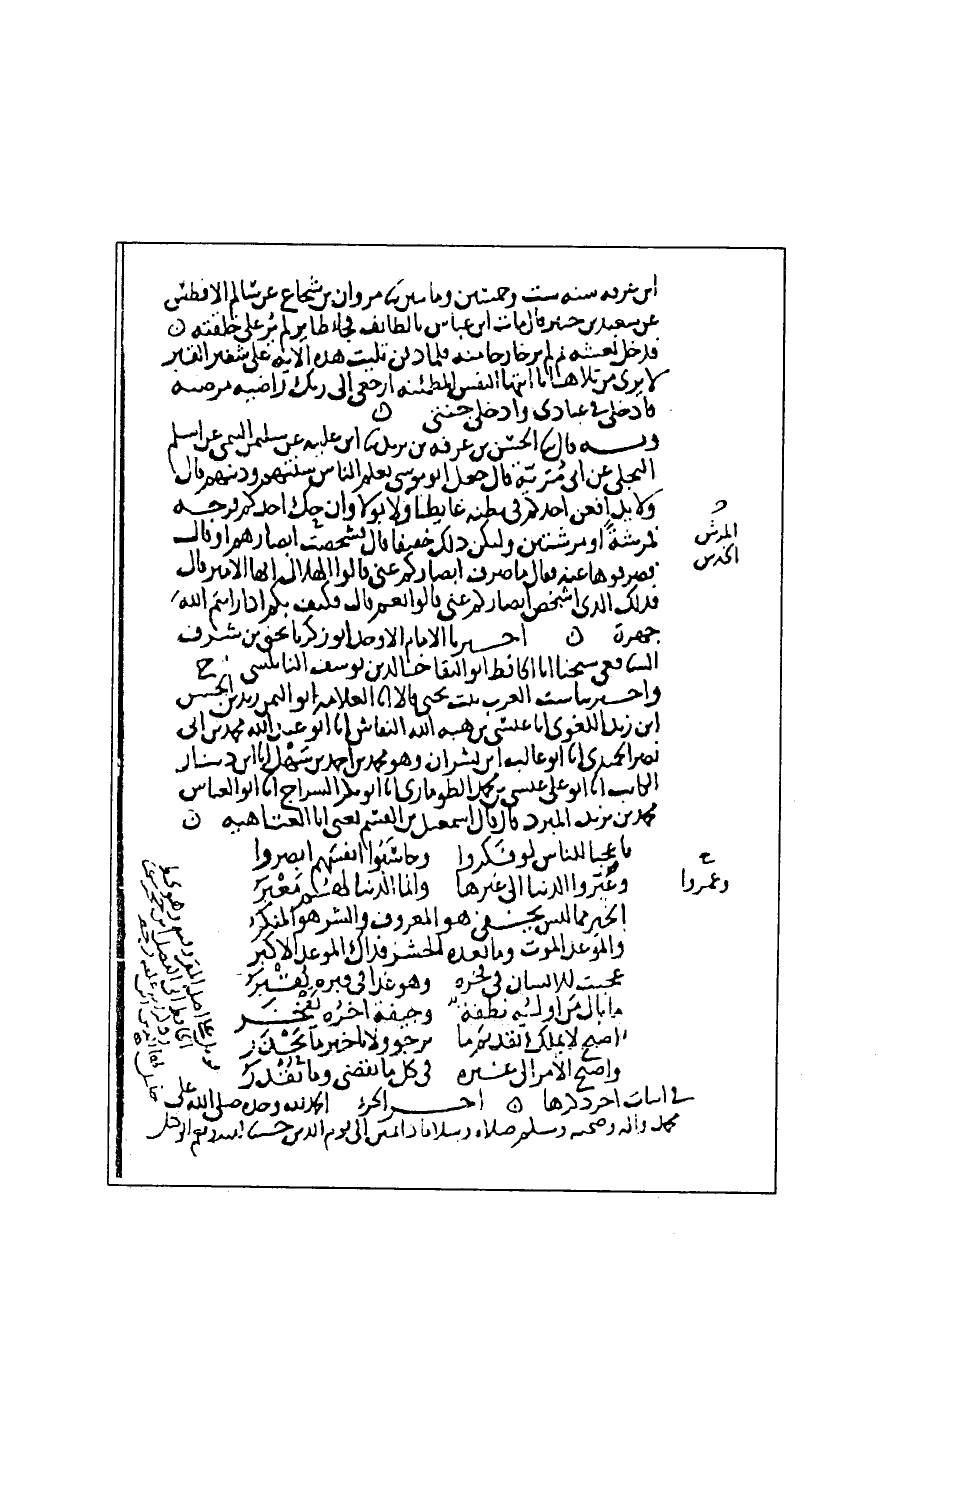 ابن عرفه سنه ست وخمسين ومايتين ثنا مروان بن شجاع عن سالم الافطس
عن سعيد بن جبير قال مات ابن عباس بالطائف فجاء طاير لم ير على خلقته
فدخل نعشه ثم لم ير خارجا منه فلما دفن تليت هذه الايه على شفير القبر
لا يرى من تلاها يا ايتها النفس المطمئنه ارجعي الى ربك راضيه مرضيه
فادخلي في عبادي وادخلي جنتي
وبه قال ثنا الحسن بن عرفه بن يزيد ثنا ابن عليه عن سليمن التيمي عن اسلم
العجلي عن ابي مُرَيّة قال جعل ابو موسى يعلم الناس سنتهم ودينهم قال
ولا يدافعن احدكم في بطنه غايطا ولا بولا وان حك احدكم فرجه
فمرشةً او مرشتين وليكن ذلك خفيفا قال فشخصت ابصارهم او قال
فصرفوها عنه فقال ما صرف ابصاركم عني قالوا الهلال ايها الامير قال
فذلك الذي اشخص ابصاركم عني قالوا نعم قال فكيف بكم اذا رايتم الله
جهرة اخبرنا الامام الاوحد ابو زكريا يحيى بن شرف
الشافعي شيخنا انا الحافظ ابو البقا خالد بن يوسف النابلسي ح
واخبرتنا ست العرب بنت يحيى قالا انا العلامه ابو اليمن زيد بن الحسن
ابن زيد اللغوي انا عيسى بن هبه الله النقاش انا ابو عبد الله محمد بن ابي
نصر الحميدي انا ابو غالب ابن بشران وهو محمد بن احمد بن سهل انا ابن دينار
الكاتب انا ابو علي عيسى بن محمد الطوماري انا ابو بكر السراج انا ابو العباس
محمد بن يزيد المبرد قال قال اسمعيل بن القسم يعني ابا العتاهيه
يا عجبا للناس لو فكروا وحاسبوا انفسهم ابصروا
وعبّروا الدنيا الى غيرها وانما الدنيا لهم معبر
الخير مما ليس يخفى هو المعروف والشر هو المنكر
والموعد الموت وما بعده الحشر فذاك الموعد الاكبر
عجبت للانسان في فخره وهو غدا في قبره يقبر
ما بال من اوله نطفة وجيفة اخره يفخر
اصبح لا يملك تقديم ما يرجو ولا تاخير ما يحذر
واصبح الامر الى غيره في كل ما يقضى وما يقدر
في ابيات اخر ذكرها اخر الجزء الحمد لله وحده صلى الله على
محمد واله وصحبه وسلم صلاة وسلاما دائمين الى يوم الدين حسبنا الله ونعم الوكيل
المرش
الخدش
ح
وعمروا